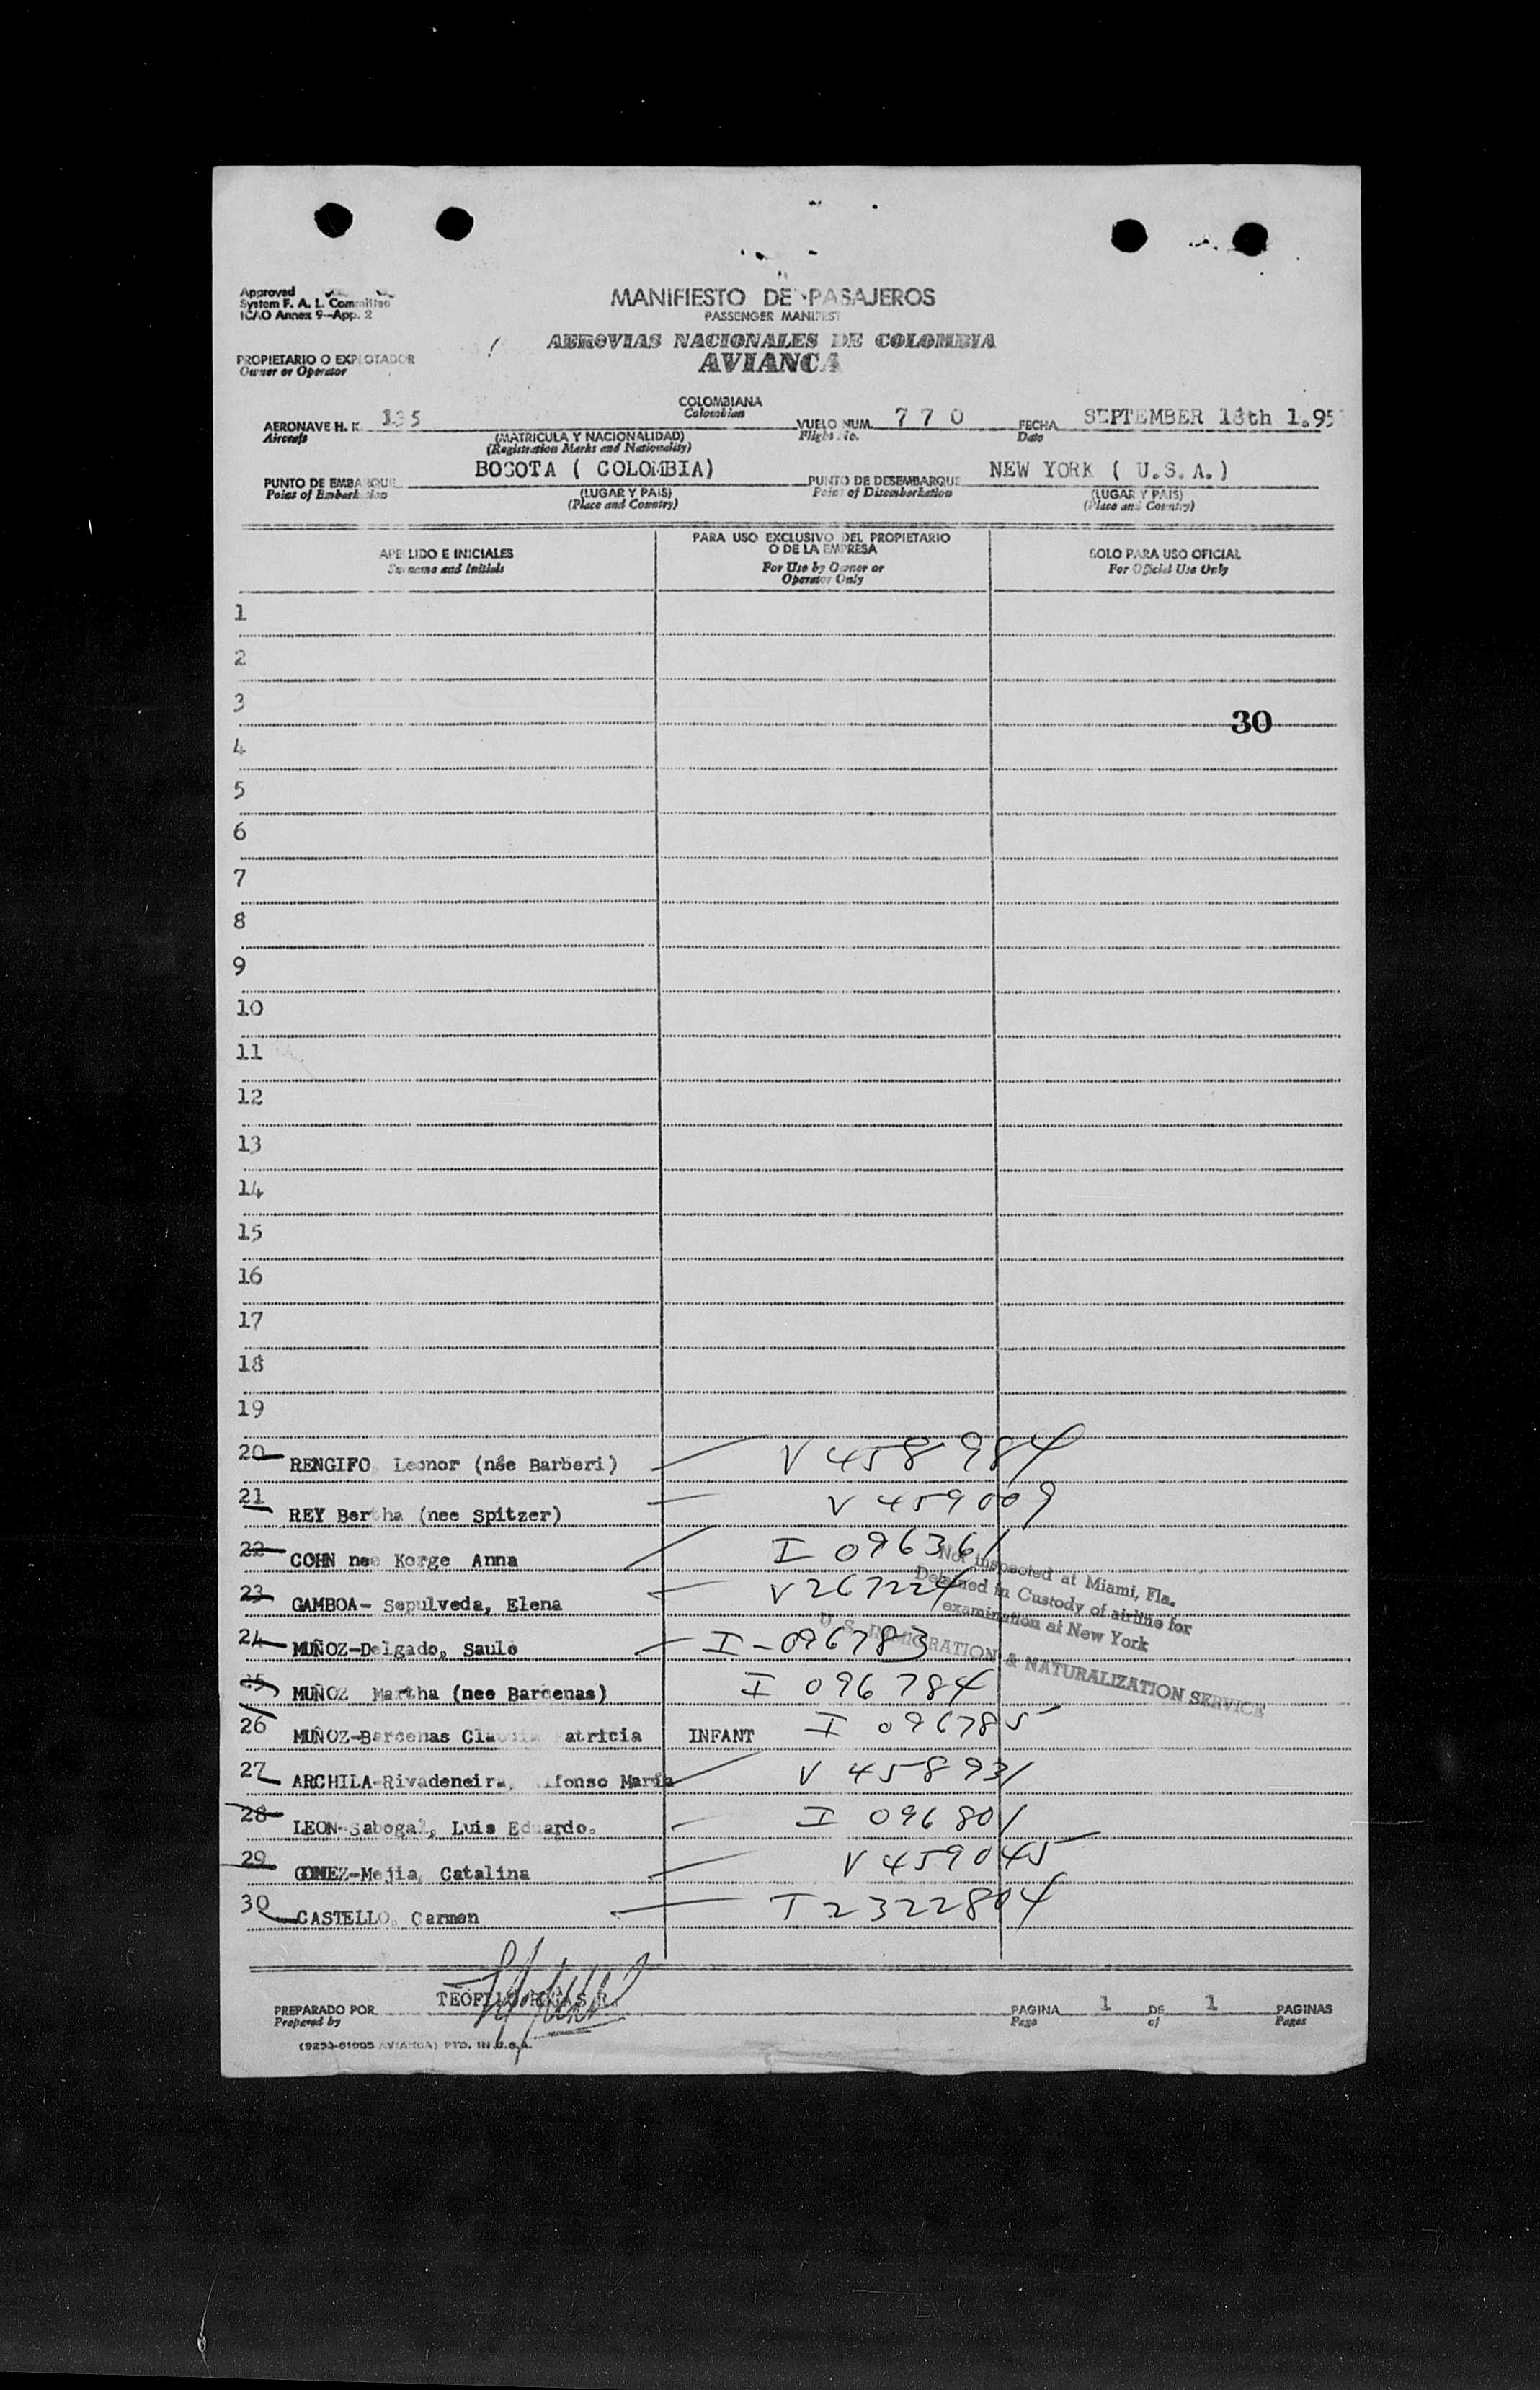 Approved
System F. A. L. Committee
ICAO Annex 9-App. 2
MANIFIESTO DE PASAJEROS
PASSENGER MANIFEST
AEROVIAS NACIONALES DE COLOMBIA
AVIANCA
PROPIETARIO O EXPLOTADOR
Owner or Operator
COLOMBIANA
Colombian
AERONAVE H. K. 135 VUELO NUM. 7 7 0 FECHA SEPTEMBER 18th 1.95
Aircraft Flight No. Date
(MATRICULA Y NACIONALIDAD)
(Registration Marks and Nationality)
PUNTO DE EMBARQUE BOGOTA ( COLOMBIA) PUNTO DE DESEMBARQUE NEW YORK ( U.S.A.)
Point of Embarkation Point of Disembarkation
(LUGAR Y PAIS) (LUGAR Y PAIS)
(Place and Country) (Place and Country)
APELLIDO E INICIALES
Surname and Initials
PARA USO EXCLUSIVO DEL PROPIETARIO
O DE LA EMPRESA
For Use by Owner or
Operator Only
SOLO PARA USO OFICIAL
For Official Use Only
1
2
3
30
4
5
6
7
8
9
10
11
12
13
14
15
16
17
18
19
20 RENGIFO, Leonor (née Barberi) V 458984
21 REY Bertha (nee Spitzer) V 459009
22 COHN nee Korge Anna I 096361
23 GAMBOA- Sepulveda, Elena V 267224
24 MUÑOZ-Delgado, Saulo I-096783
25 MUÑOZ Martha (nee Barcenas) I 096784
26 MUÑOZ-Barcenas Claudia Patricia INFANT I 096785
27 ARCHILA-Rivadeneira, Alfonso María V 458931
28 LEON-Sabogal, Luis Eduardo. I 096801
29 GOMEZ-Mejia, Catalina V 459045
30 CASTELLO, Carmen T 2322804
Not inspected at Miami, Fla.
Detained in Custody of airline for
examination at New York
U. S. IMMIGRATION & NATURALIZATION SERVICE
PREPARADO POR TEOFILO ROJAS R. PAGINA 1 DE 1 PAGINAS
Prepared by Page of Pages
(9253-61005 AVIANCA) PTD. IN U.S.A.